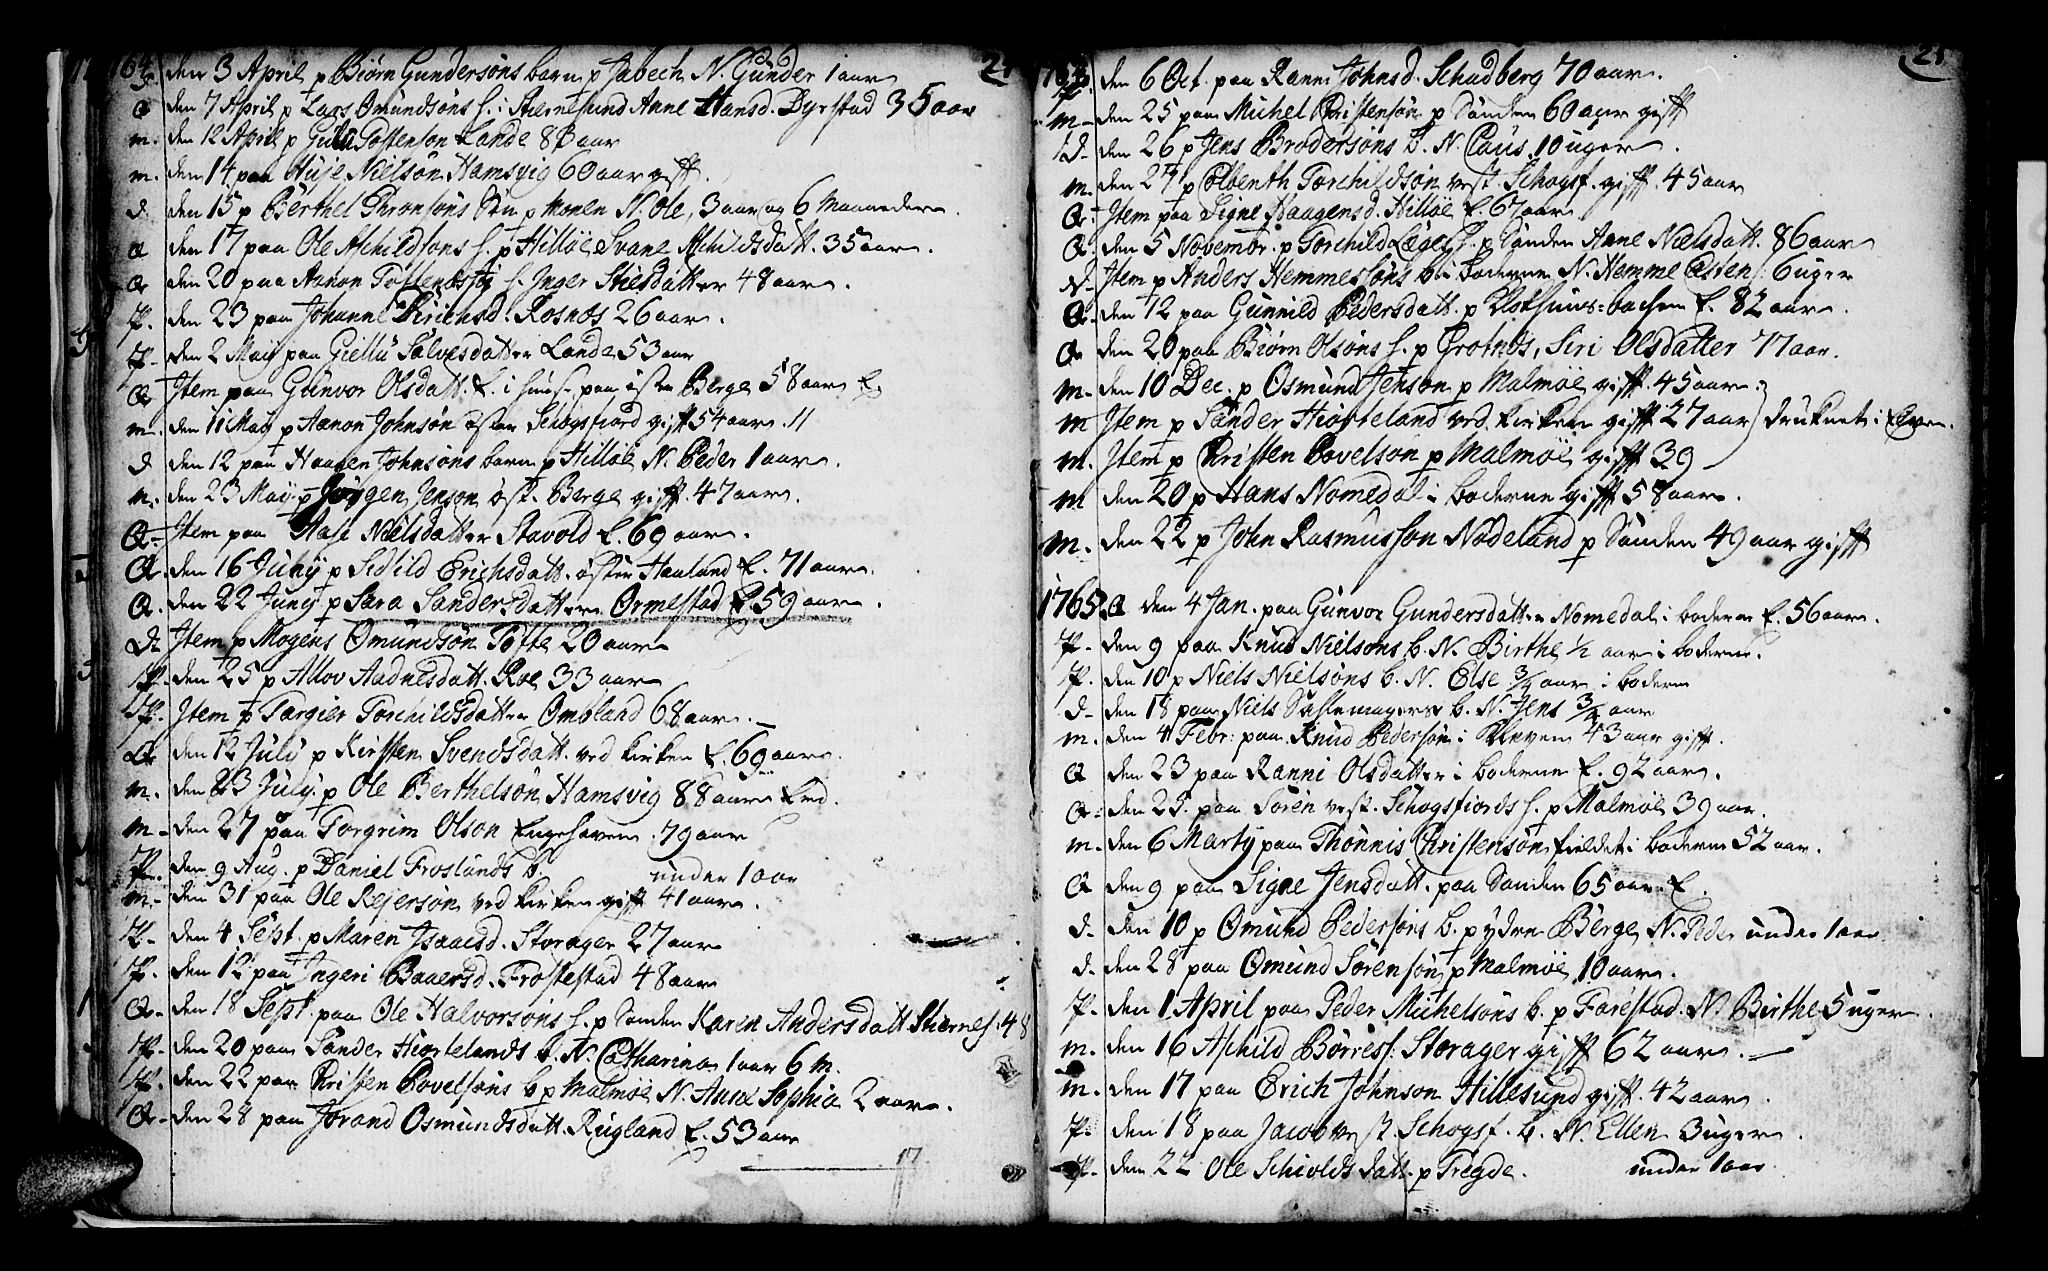 1764 24
d. den 3 April p Biørn Gundersøns barn p Jabech N. Gunder 1 aar
Q den 7 April p Lars Omundsøns h. i Stiernesund Anne Hansd. Dyrstad 35 aar
m. den 12 April p Tostenson Lande 88 aar
m. den 14 paa Nielsøn Hamsvig 60 aar gift.
d. den 15 p Berthel Thronsøns Søn p Monen N. Ole, 3 aar og 6 Maaneder
Q den 17 paa Ole Aschildsøns h. p Hilløe Svane Aschildsdatt. 35 aar.
Q den 20 paa Aanon h. Inger Stiesdatter 48 aar.
P. den 23 paa Johanne Dirichsd. Rosnes 26 aar.
P. den 2 Maij paa Giellu Salvesdatter Lande 53 aar
Q Item paa Gunvor Olsdatt. E. i huus paa øster Berge 58 aar E.
m. den 11 Maij p Aanon Johnsøn øster Schogsfiord gift 54 aar. 11
d den 12 paa Haagen Johnsøns barn p Hilløe N. Peder 1 aar.
m. den 23 Maij p Jørgen Jenson øst. Berge gift. 47 aar.
Q- Item paa Aase Nielsdatter Stavold E. 69 aar.
Q. den 16 Juny p Sidsild Erichsdatt. øster Haaland E. 71 aar.
Q. den 22 Juny p Sara Sandersdatter Ormestad E. 59 aar.
d. Item p Mogens Omundsøn Tofte 20 aar
P. den 25 p Allov Aadnesdatt. Roe 33 aar
P. Item p Targier Torchildsdatter Ombland 68 aar.
Q den 12 July p Kirsten Svendsdatt. ved kirken E. 69 aar.
m. den 23 July. p Ole Berthelsøn Hamsvig 88 aar
m- den 27 paa Torgrim Olson Engehaven. 79 aar
P. den 9 Aug. p Daniel Froslunds b. under 1 aar
m.- den 31 paa Ole Rejersøn ved kirken gift 41 aar.
P- den 4 Sept. p Maren Isaacsd. Storager 27 aar
P. den 12 paa Ingeri Baaersd. Frostestad 48 aar
Q- den 18 Sept. paa Ole Halvorsøns h. p Sanden Karen Andersdatt Stiernes. 48
P- den 20 paa Sander Hiortelands b. N. Catharina 1 aar 6 m.
P. den 22 paa Christen Povelsøns b p Malmøe N. Anne Sophia 2 aar.
Q- den 28 paa Jorand Osmundsdatt. Rugland E. 53 aar
17
1764 25
P. den 6 Oct. paa Ranni Johnsd. Schadberg 70 aar.
m- den 25 paa Michel Christensøn p Sanden 60 aar gift
d- den 26 p Jens Brodersøns b. N. Claus 10 uger.
m. den 27 p Colbenth Torchildsøn vest. Schogsf. gift. 45 aar
Q- Item paa Signe Haagensd. Hilløe E. 67 aar
Q. den 5 Novembr. p Torchild h. p Sanden Anne Nielsdatt. 86 aar
d- Item p Anders Hemmesøns b. i boderne N. Hemme 6 uger
Q. den 12 paa Gunnild Pedersdatt. p E. 82 aar.
Q den 20 paa Biørn Olsøns h. p Grotnes, Siri Olsdatter 77 aar.
m. den 10 Dec. p Osmund Jenson p Malmøe gift. 45 aar.
m Item p Sander Hiorteland ved kirken gift 27 aar druknet i
m. Item p Christen Povelsøn p Malmøe gift 39
m den 20 p Hans Nomedal i boderne gift 58 aar.
m. den 22 p John Rasmusson Nodeland p Sanden 49 aar gift
1765. Q den 4 Jan. paa Gunvor Gundersdatter Nomedal i boderne E. 56 aar.
P. den 9 paa Knud Nielsøns b. N. Birthe ½ aar i boderne.
P. den 10 p Niels Nielsøns b. N. Else ¾ aar i boderne
d- den 18 paa Niels b. N. Jens ¾ aar
m. den 4 Febr: paa Knud Pedersøn i Kleven 43 aar gift.
Q den 23 paa Ranni Olsdatter i boderne E. 92 aar.
Q- den 25. paa Søren vest. Schogsfiords h. p Malmøe 39 aar.
m. den 6 Marty paa Thonnis Christensøn i boderne 52 aar.
Q den 9 paa Signe Jensdatt. paa Sanden 65 aar. E.
d- den 10 p Omund Pedersøns b. p ydre Berge N. Peder under 1 aar
d. den 28 paa Omund Sørensøn p Malmøe 10 aar.
P. den 1 April paa Peder Michelsøns b. p Farestad. N. Birthe 5 uger
m. den 16 Aschild Børres: Storager gift 62 aar.
m. den 17 paa Erich Johnson Hillesund gift. 42 aar.
P. den 18 paa Jacob vest. Schogsf. b. N. Ellen 3 uger.
P. den 22 Ole datt. p Tregde. under 1 aar.